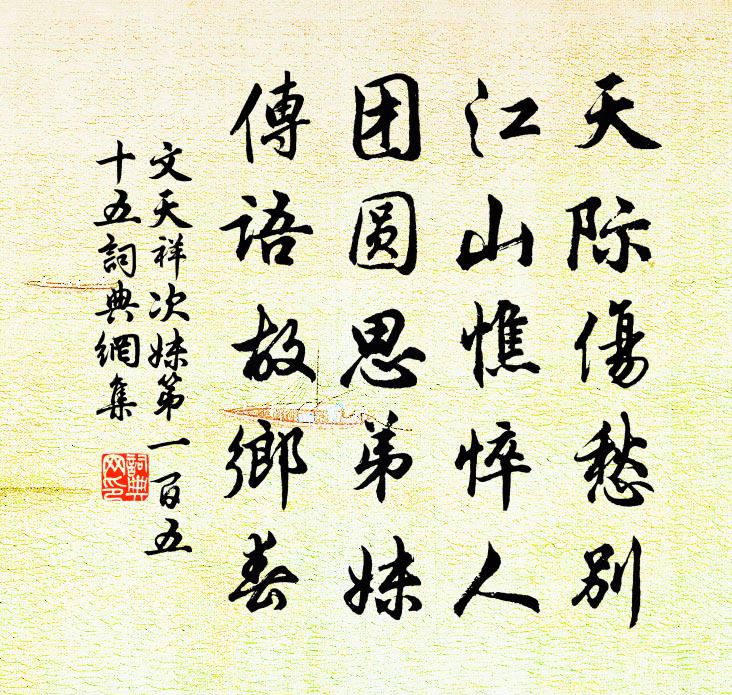 天际傷愁别
江山憔悴人
团圆思弟妹
傳語故鄉春
文天祥次妹第一百五
十五詞典網集
詞典
网印